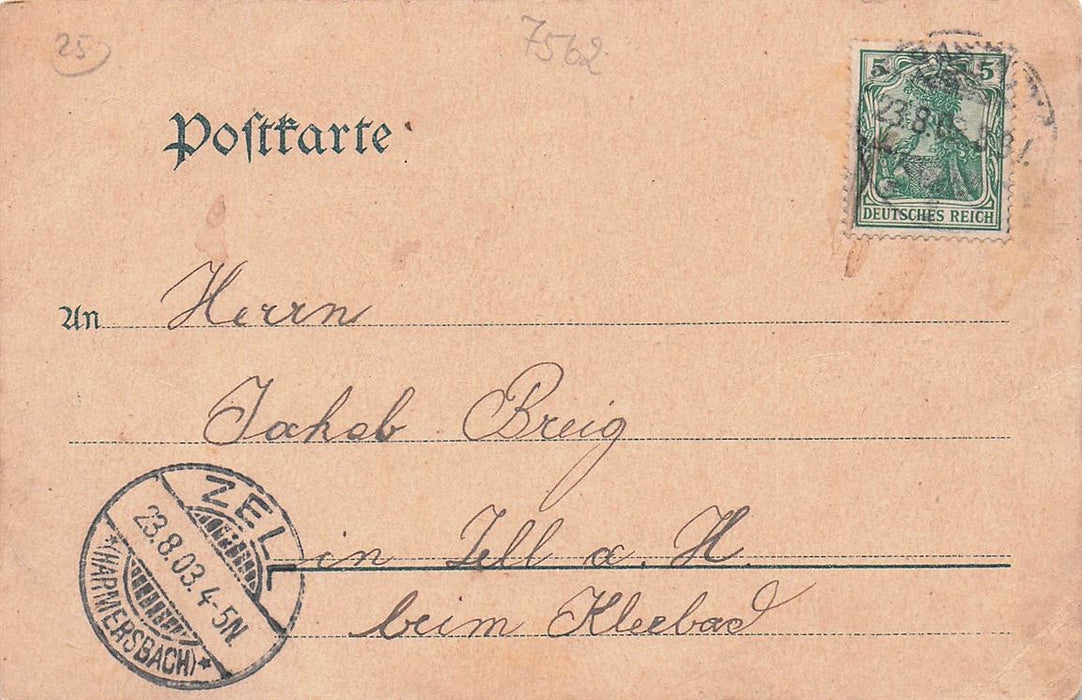 25
7562
Postkarte
5 5
23.8.
DEUTSCHES REICH
An Herrn
Jakob Breig
in Zell a. H.
beim Kleebad
ZELL
23.8.03.4-5N.
*(HARMERSBACH)*